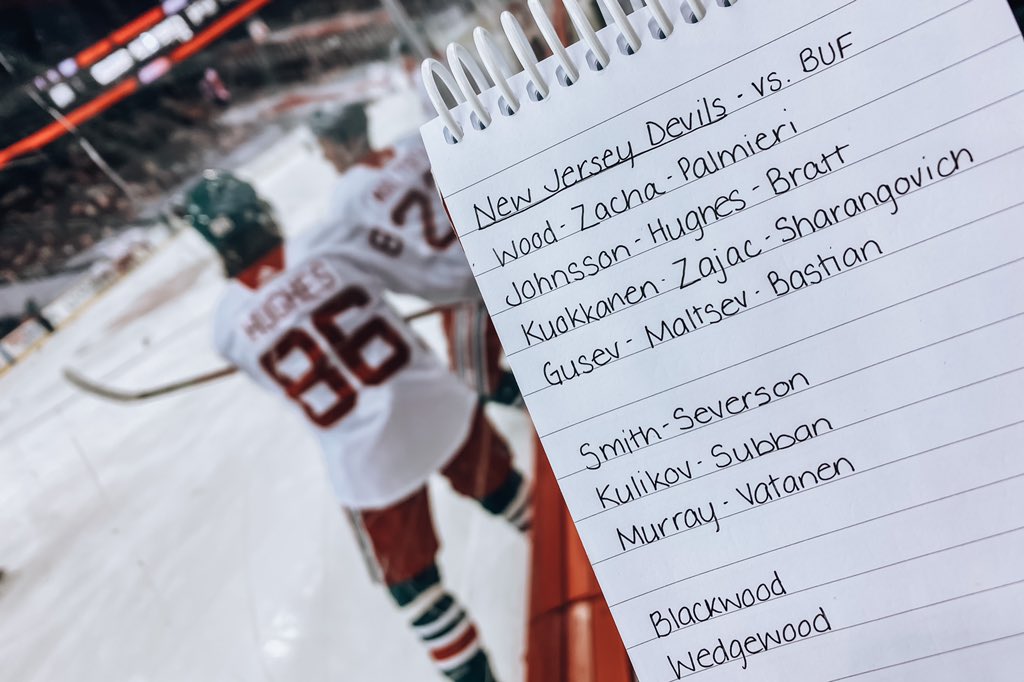 New Jersey Devils - vs. BUF
Wood - Zacha - Palmieri
Johnsson - Hughes - Bratt
Kuokkanen - Zajac - Sharangovich
Gusev - Maltsev - Bastian
Smith - Severson
Kulikov - Subban
Murray - Vatanen
Blackwood
Wedgewood
HUGHES
86